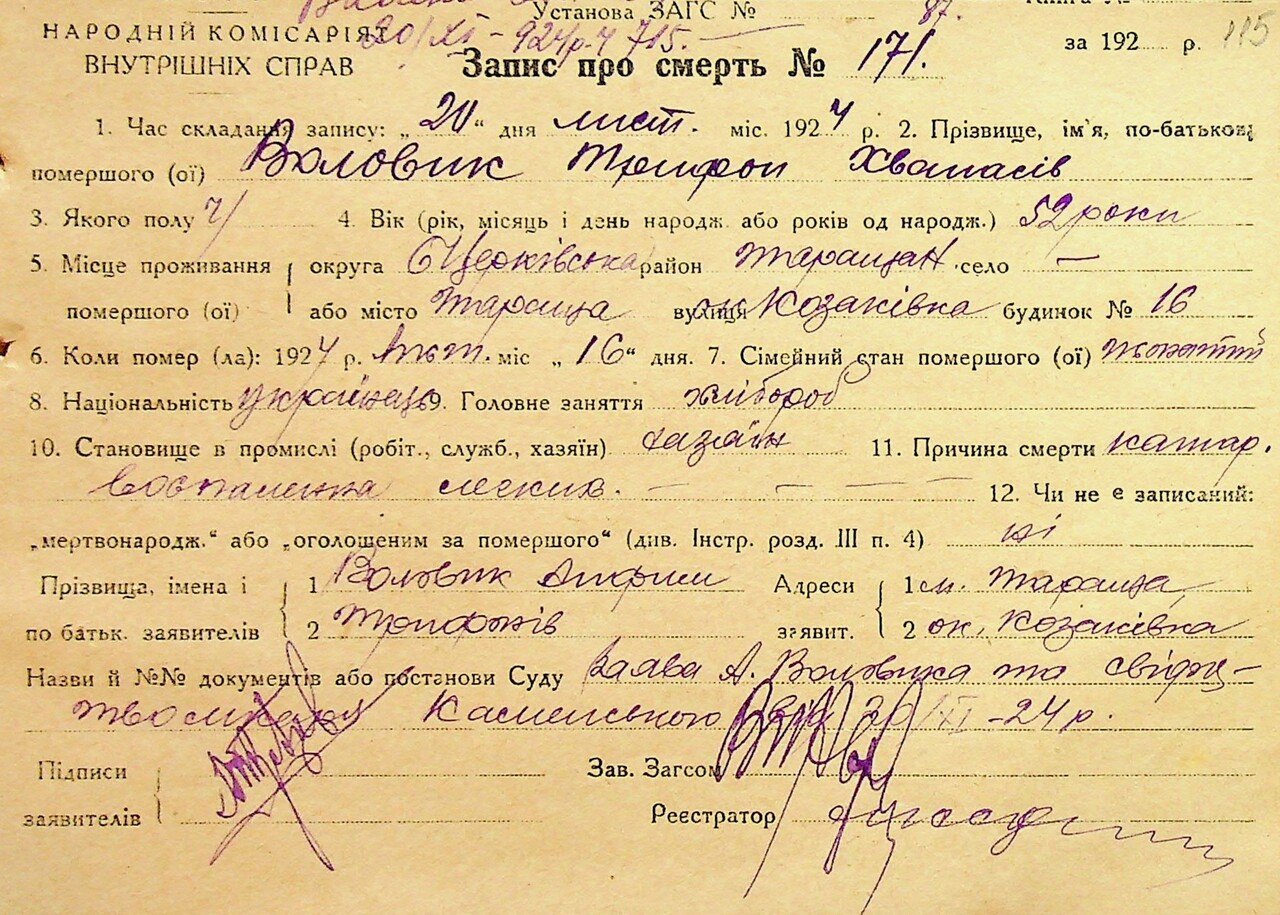 Установа ЗАГС № 87.
20/XI – 924 р. ч 715.
НАРОДНІЙ КОМІСАРІЯТ
ВНУТРІШНІХ СПРАВ
за 192 р. 115
Запис про смерть № 171.
1. Час складання запису: „20“ дня лист. міс. 1924 р. 2. Прізвище, ім'я, по-батькові
помершого (ої) Воловик Трифон Хванасів
3. Якого полу ч 4. Вік (рік, місяць і день народж. або років од народж.) 52 роки
5. Місце проживання округа БЦерківська район Таращан село —
помершого (ої) або місто Тараща вулиця ок. Козаківка будинок № 16
6. Коли помер (ла): 1924 р. лист. міс „16“ дня. 7. Сімейний стан помершого (ої) жонатий
8. Національність українець 9. Головне заняття хлібороб
10. Становище в промислі (робіт., служб., хазяїн) хазяїн 11. Причина смерти катар.
воспаления легких. — — — — 12. Чи не є записаний:
„мертвонародж.“ або „оголошеним за помершого“ (див. Інстр. розд. III п. 4) ні
Прізвища, імена і 1 Воловик Адреси 1 м. Тараща,
по батьк. заявителів 2 Трифонів заявит. 2 ок. Козаківка
Назви й №№ документів або постанови Суду Заява А. Воловика та свідоц-
тво Каменського від 20/XI – 24 р.
Підписи
заявителів
Зав. Загсом
Реєстратор